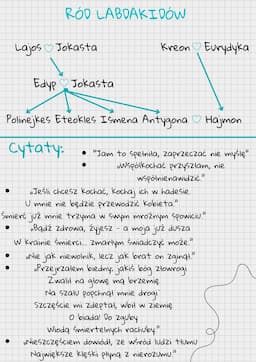 RÓD LABDAKIDÓW
Lajos Jokasta
Kreon Eurydyka
Edyp Jokasta
Polinejkes Eteokles Ismena Antygona Hajmon
Cytaty:
• "Jam to spełniła, zaprzeczać nie myślę"
• „Współkochać przyszłam, nie
współnienawidzić."
• „Jeśli chcesz kochać, kochaj ich w hadesie.
U mnie nie będzie przewodzić kobieta."
Śmierć już mnie trzyma w swym mroźnym spowiciu."
• „Bądź zdrowa, żyjesz - a moja już dusza
W krainie śmierci... zmarłym świadczyć może."
• „Nie jak niewolnik, lecz jak brat on zginął."
• „Przejrzałem biedny; jakiś bóg złowrogi
Zwalił na głowę mą brzemię.
Na szału popchnął mnie drogi
Szczęście mi zdeptał, wbił w ziemię
O biada! Do zguby
Wiodą śmiertelnych rachuby."
• „Nieszczęściem dowiódł, że wśród ludzi tłumu
Największe klęski płyną z nierozumu."